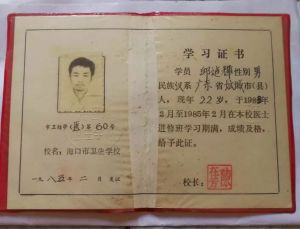 市卫结学(医)第60号
校名：海口市卫生学校
一九八五年二月 发证
学习证书
学员 性别男
民族汉系广东省 市(县)
人，现年22岁，于1983年
2月至1985年2月在本校医士
进修班学习期满，成绩及格，
给予此证。
校长：